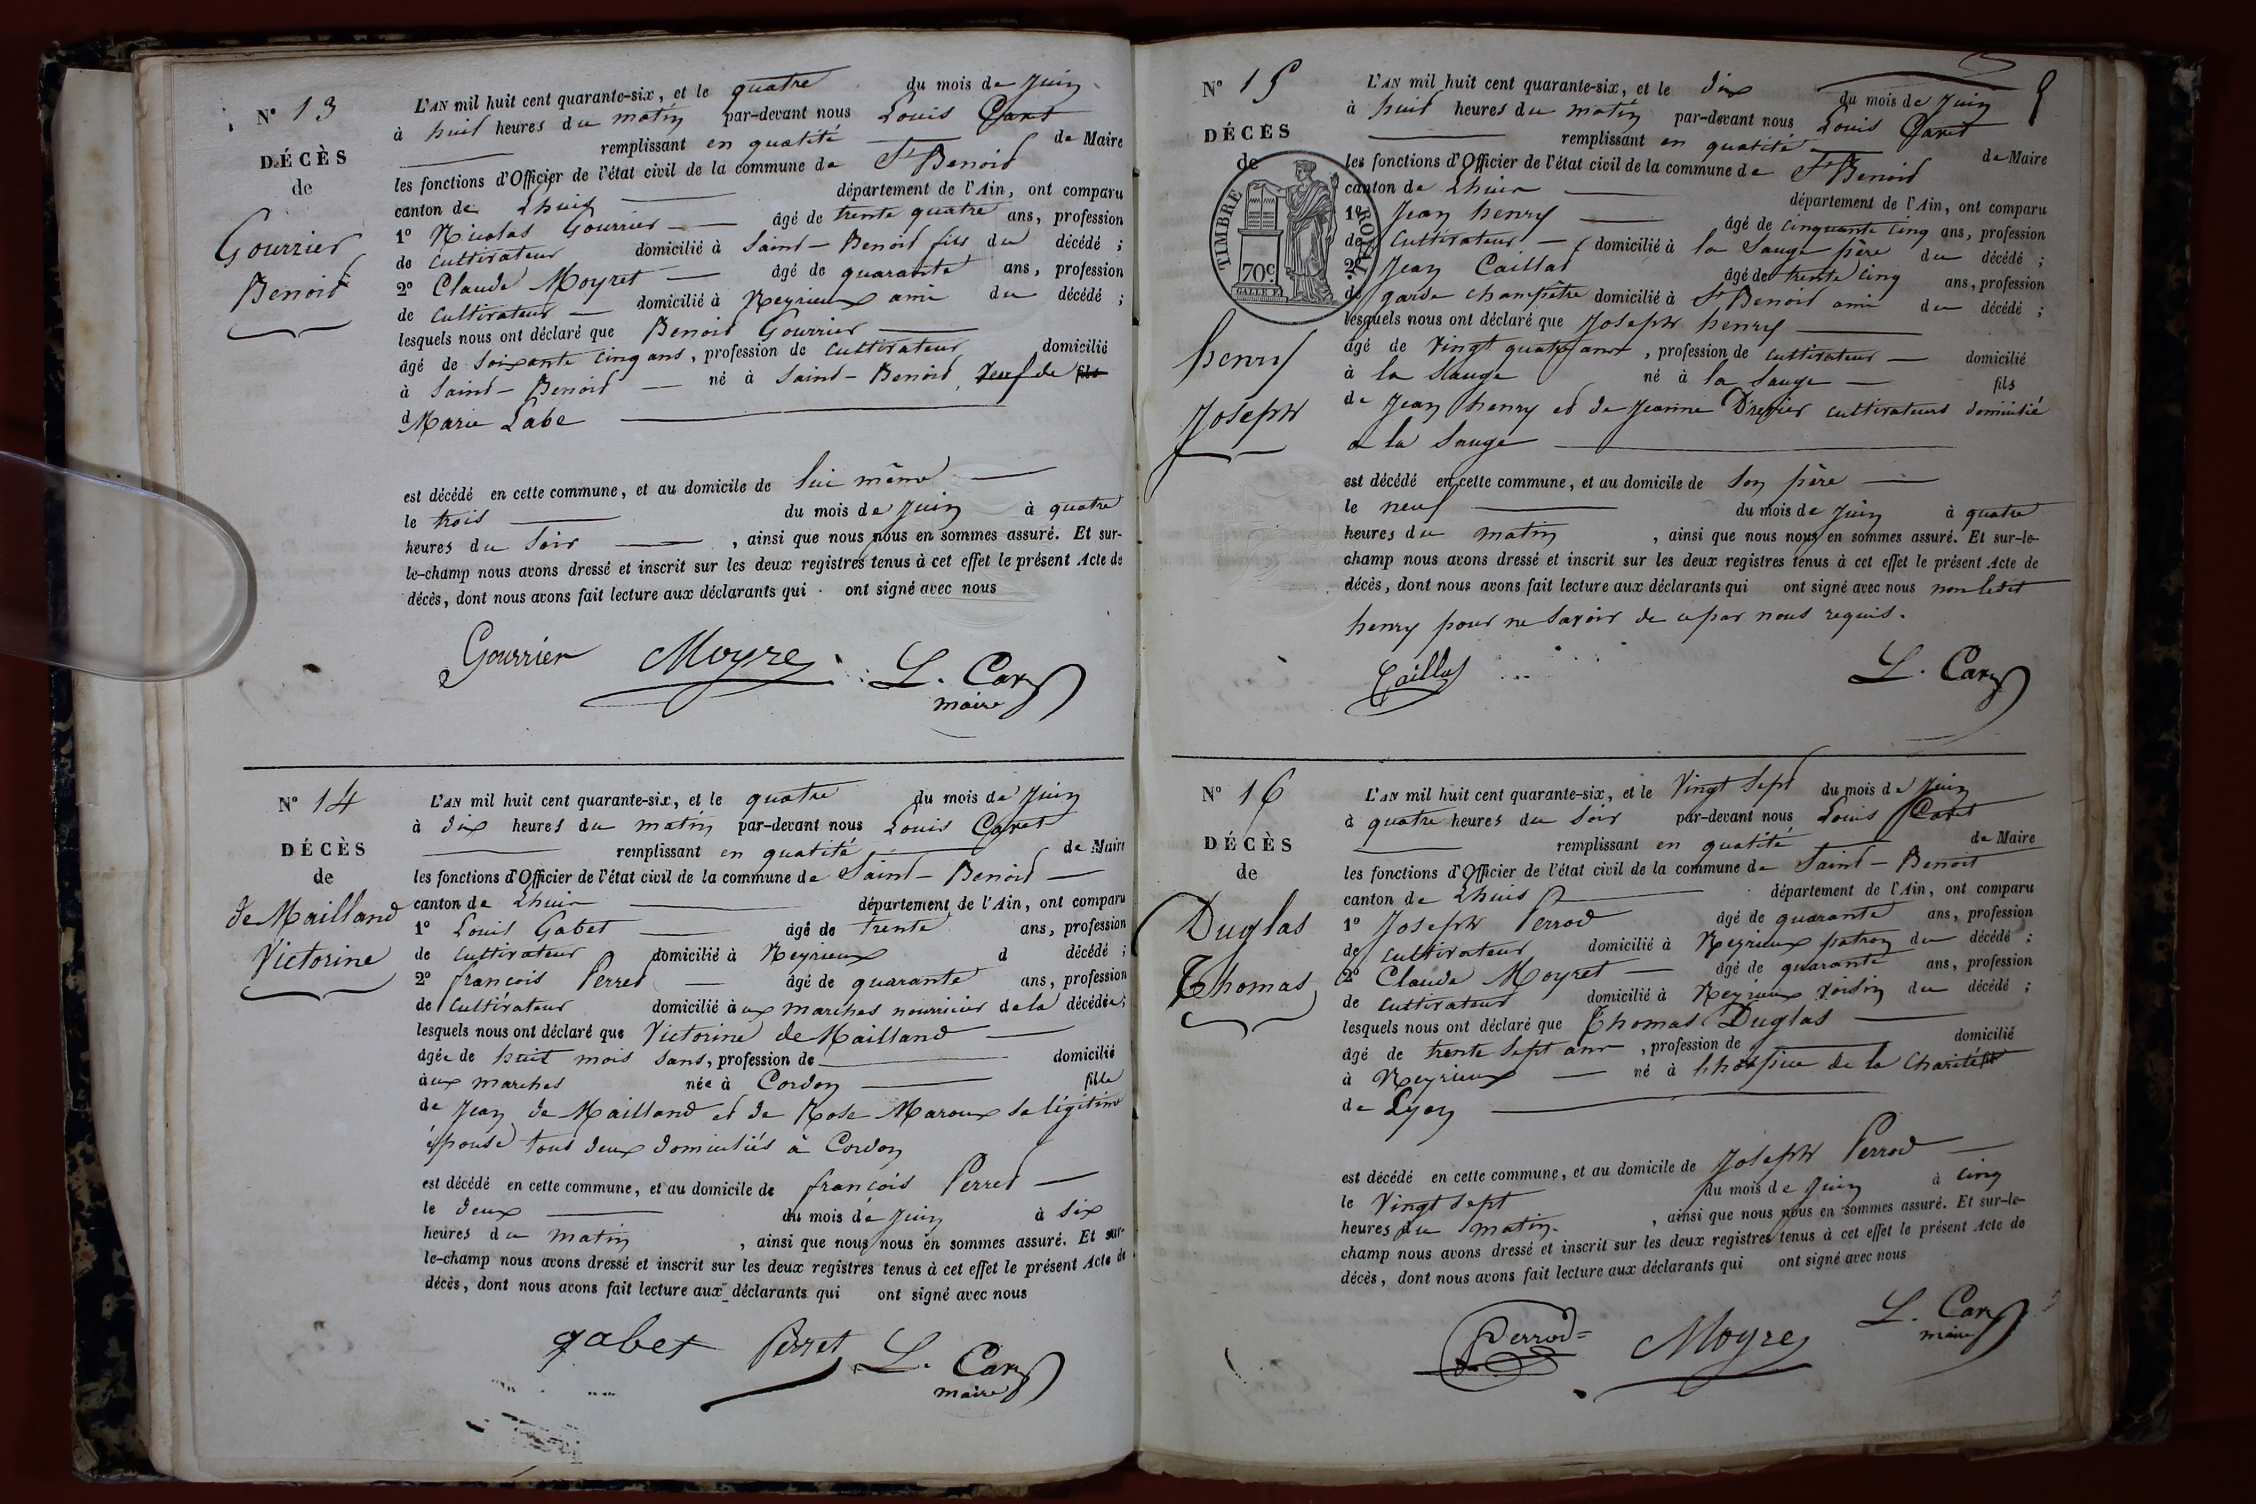 N° 13
DÉCÈS
de
Gourrier
Benoit
L'AN mil huit cent quarante-six, et le quatre du mois de Juin
à huit heures du matin par-devant nous Louis Caret
remplissant en qualité de Maire
les fonctions d'Officier de l'état civil de la commune de St Benoit
canton de Lhuis département de l'Ain, ont comparu
1° Nicolas Gourrier âgé de trente quatre ans, profession
de cultivateur domicilié à Saint-Benoit fils du décédé ;
2° Claude Moyret âgé de quarante ans, profession
de cultivateur domicilié à Neyrieux ami du décédé ;
lesquels nous ont déclaré que Benoit Gourrier
âgé de soixante cinq ans, profession de cultivateur domicilié
à Saint-Benoit né à Saint-Benoit, veuf de fils
d Marie Labe
est décédé en cette commune, et au domicile de lui même
le trois du mois de Juin à quatre
heures du soir , ainsi que nous nous en sommes assuré. Et sur-
le-champ nous avons dressé et inscrit sur les deux registres tenus à cet effet le présent Acte de
décès, dont nous avons fait lecture aux déclarants qui ont signé avec nous
Gourrier Moyret L. Caret
maire
N° 14
DÉCÈS
de
de Mailland
Victorine
L'AN mil huit cent quarante-six, et le quatre du mois de Juin
à dix heures du matin par-devant nous Louis Caret
remplissant en qualité de Maire
les fonctions d'Officier de l'état civil de la commune de Saint-Benoit
canton de Lhuis département de l'Ain, ont comparu
1° Louis Gabet âgé de trente ans, profession
de cultivateur domicilié à Neyrieux d décédé ;
2° françois Perret âgé de quarante ans, profession
de cultivateur domicilié aux marches nourricier de la décédée ;
lesquels nous ont déclaré que Victorine de Mailland
âgée de huit mois sans, profession de domicilié
aux marches née à Cordon fille
de Jean de Mailland et de Rose Maroux sa légitime
épouse tous deux domiciliés à Cordon
est décédé en cette commune, et au domicile de françois Perret
le deux du mois de Juin à six
heures du matin , ainsi que nous nous en sommes assuré. Et sur-
le-champ nous avons dressé et inscrit sur les deux registres tenus à cet effet le présent Acte de
décès, dont nous avons fait lecture aux déclarants qui ont signé avec nous
gabet Perret L. Caret
maire
N° 15
DÉCÈS
de
TIMBRE ROYAL
70c.
GALLE F.
henry
Joseph
L'AN mil huit cent quarante-six, et le dix du mois de Juin
à huit heures du matin par-devant nous Louis Caret
remplissant en qualité de Maire
les fonctions d'Officier de l'état civil de la commune de St Benoit
canton de Lhuis département de l'Ain, ont comparu
1° Jean henry âgé de cinquante cinq ans, profession
de cultivateur domicilié à la Sauge père du décédé ;
2° Jean Caillat âgé de trente cinq ans, profession
de garde champêtre domicilié à St Benoit ami du décédé ;
lesquels nous ont déclaré que Joseph henry
âgé de vingt quatre ans , profession de cultivateur domicilié
à la Sauge né à la Sauge fils
de Jean henry et de Jeanne Drevier cultivateurs domicilié
a la Sauge
est décédé en cette commune, et au domicile de son père
le neuf du mois de Juin à quatre
heures du matin , ainsi que nous nous en sommes assuré. Et sur-le-
champ nous avons dressé et inscrit sur les deux registres tenus à cet effet le présent Acte de
décès, dont nous avons fait lecture aux déclarants qui ont signé avec nous non ledit
henry pour ne savoir de ce par nous requis.
Caillat L. Caret
N° 16
DÉCÈS
de
Duglas
Thomas
L'AN mil huit cent quarante-six, et le vingt sept du mois de Juin
à quatre heures du soir par-devant nous Louis Caret
remplissant en qualité de Maire
les fonctions d'Officier de l'état civil de la commune de Saint-Benoit
canton de Lhuis département de l'Ain, ont comparu
1° Joseph Perrod âgé de quarante ans, profession
de cultivateur domicilié à Neyrieux patron du décédé ;
2° Claude Moyret âgé de quarante ans, profession
de cultivateur domicilié à Neyrieux voisin du décédé ;
lesquels nous ont déclaré que Thomas Duglas
âgé de trente sept ans , profession de domicilié
à Neyrieux né à l'hospice de la Charité fils
de Lyon
est décédé en cette commune, et au domicile de Joseph Perrod
le vingt sept du mois de Juin à cinq
heures du matin. , ainsi que nous nous en sommes assuré. Et sur-le-
champ nous avons dressé et inscrit sur les deux registres tenus à cet effet le présent Acte de
décès, dont nous avons fait lecture aux déclarants qui ont signé avec nous
Perrod Moyret L. Caret
maire